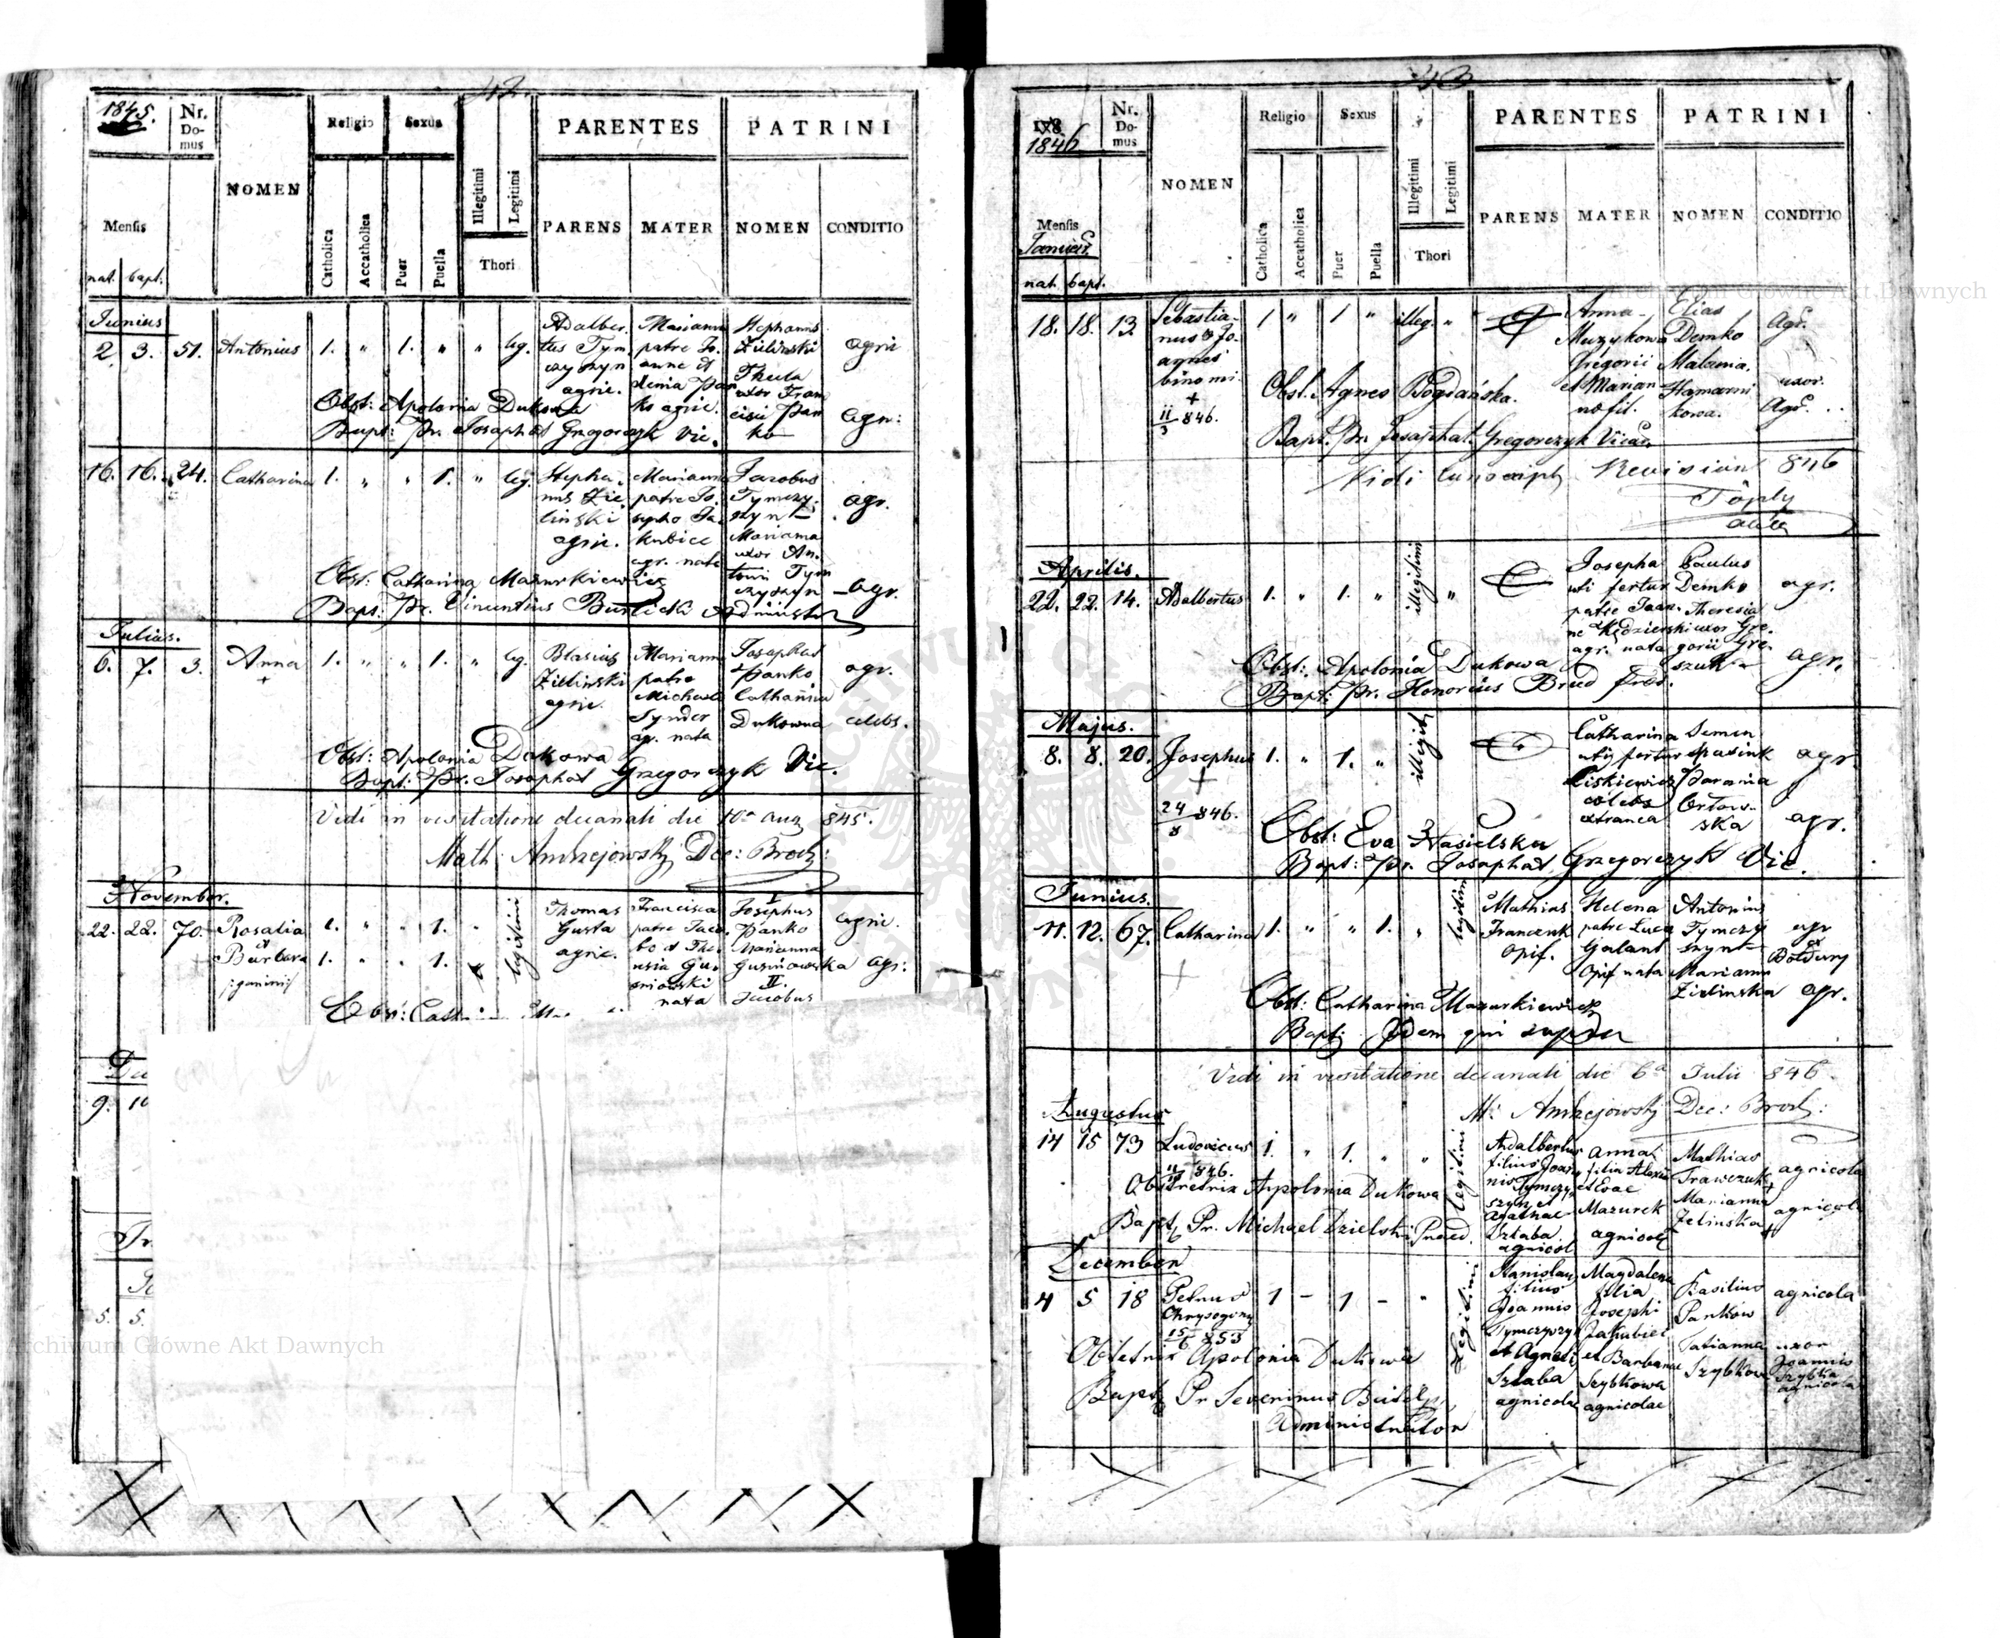 42.
1845.
Nr.
Do-
mus
NOMEN
Religio
Sexus
Illegitimi
Legitimi
Thori
PARENTES
PATRINI
Mensis
nat. bapt.
Catholica
Accatholica
Puer
Puella
PARENS
MATER
NOMEN
CONDITIO
Junius
2. 3. 51. Antonius 1. " 1. " " leg.
Adalber-
tus Tym-
czyszyn
agric.
Marianna
patre Jo-
anne et
Pan-
ko agric.
Stephanus
Zielinski
Thecla
uxor Fran
cisci Pan
ko
agric
agri:
Obst: Apolonia Dukowa
Bapt: Pr. Josaphat Grzegorczyk Vic.
16. 16. 24. Catharina 1. " " 1. " leg.
Stepha-
nus Zie
linski
agric.
Marianna
patre Jo-
sepho Ja-
kubiec
agr. nata
Jacobus
Tymczy-
szyn
Marianna
uxor An-
tonii Tym
czyszyn
agr.
agr.
Obst: Catharina Mazurkiewicz
Bapt: Pr. Vincentius Administr
Julius.
6. 7. 3. Anna 1. " " 1. " leg.
+
Blasius
Zielinski
agric.
Marianna
patre
Michaele
Synder
agr. nata
Josaphat
Panko
Catharina
Dukowna
agr.
celebs.
Obst: Apolonia Dukowa
Bapt: Pr. Josaphat Grzegorczyk Vic.
Vidi in visitatione decanali die 10a Aug 845.
Math: Andrzejowski Dec: Brod:
November.
22. 22. 70. Rosalia 1. " " 1. "
et
Barbara 1. " " 1. "
legitimi
Thomas
Gusta
agric.
Francisca
patre Jaco-
bo et The-
resia Gu-
sniowski
nata
I
Josephus
Panko
Marianna
Gusniowska
II
Jacobus
agric.
agr.
Obst:
9. 10
5. 5.
Archiwum Główne Akt Dawnych
43
1846
Nr.
Do-
mus
NOMEN
Religio
Sexus
Illegitimi
Legitimi
Thori
PARENTES
PATRINI
Mensis
Januar.
nat. bapt.
Catholica
Accatholica
Puer
Puella
PARENS
MATER
NOMEN
CONDITIO
Archiwum Główne Akt Dawnych
18. 18. 13 Sebastia- 1 " 1 " illeg. "
nus & Jo-
annes
binomi
+
11/3 846.
Anna
Muzykowa
Gregorii
et Marian
na fil.
Elias
Demko
Malania
Hamarni
kowa.
Agr.
uxor.
Agr.
Obst. Agnes Bogdańska.
Bapt. Pr. Josaphat Gregorczyk Vicar
Vidi Revision 846
Aprilis.
22. 22. 14. Adalbertus 1. " 1. " illegitimi "
Josepha
uti fertur
patre Joan-
ne Kędzierski
agr. nata
Paulus
Demko
Theresia
uxor Gre-
gorii Gre-
szuk
agr.
agr.
Obst: Apolonia Dukowa
Bapt: Pr. Honorius
Majus.
8. 8. 20. Josephus 1. " 1. " illegit.
+
24/8 846.
Catharina
uti fertur
Liskiewicz
celebs
extranea
Semen
Parania
Orłow-
ska
agr
agr.
Obst: Eva Nasielska
Bapt: Pr. Josaphat Grzegorczyk Vic.
Junius.
11. 12. 67. Catharina 1. " " 1. " legitimi
Mathias
Franczuk
Opif.
Helena
patre Luca
Galant
Opif nata
Antonius
Tymczy
szyn
Marianna
Zielinska
agr
agr.
Obst: Catharina Mazurkiewicz
Bapt: Idem qui supra
Vidi in visitatione decanali die 6a Julii 846.
M: Andrzejowski Dec: Brod:
Augustus
14 15 73 Ludovicus 1. " 1. " " legitimi
846.
Adalbertus
filius Joan-
nis Tymczy
szyn et
Agathae
Szlaba
agricol
Anna
filia Alexii
et Evae
Mazurek
agricol
Mathias
Marianna
Zelinska
agricola
agricol
Obstetrix Apolonia Dukowa
Bapt. Pr. Michael Dzielski
December
4 5 18 Petrus 1 - 1 - " Legitimi
Chrysogony
15/6 853
Stanislaus
filius
Joannis
Tymczyszyn
et Agneti
Szlaba
agricolae
Magdalena
filia
Josephi
Jakubiec
et Barbarae
Szybkowa
agricolae
Basilius
Pankow
Tatianna
Szybkow
agricola
uxor
Joannis
Szybka
agricola
Obstetrix Apolonia Dukowa
Bapt. Pr Severinus
Administrator